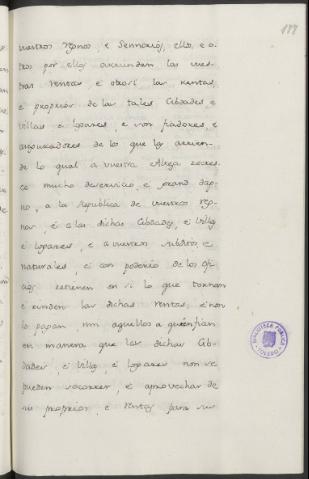 177
nuestros regnos, e Sennorios, ellos, e o-
tros por ellos arriendan las nues-
tras rentas e otrosi las rentas,
e proprios de las tales Cibdades e
villas e logares, e son fiadores, e
aseguradores de lo que los arrien-
de lo qual a vuestra Alteza recres-
ce mucho deservicio, e grand dap-
no, a la Republica de vuestros reg-
nos, é a las dichas Cibdades, é Villas
e logares, e a vuestros subditos, e
naturales, e con poderio de los ofi-
cios retienen en si lo que toman
e rinden las dichas rentas, é non
lo pagan nin aquellos a quien fian
en manera que las dichas Cib-
dades, é Villas, é logares non se
pueden socorrer, e aprovechar de
sus proprios, e rentas para sus
BIBLIOTECA PUBLICA
TOLEDO